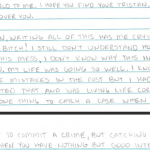 LD TO ME. I HOPE YOU FIND YOUR TRISTAN,
OVER YOU.
N, WRITING ALL OF THIS HAS ME CRYI
BITCH! I STILL DON'T UNDERSTAND HO
THIS MESS, I DON'T KNOW WHY THIS HA
, MY LIFE WAS GOING SO WELL. I KN
MISTAKES IN THE PAST BUT I HAD
TED THAT AND WAS LIVING LIFE COR
THING TO CATCH A CASE WHEN
TO COMMIT A CRIME, BUT CATCHING
HEN YOU HAVE NOTHING BUT GOOD INTE